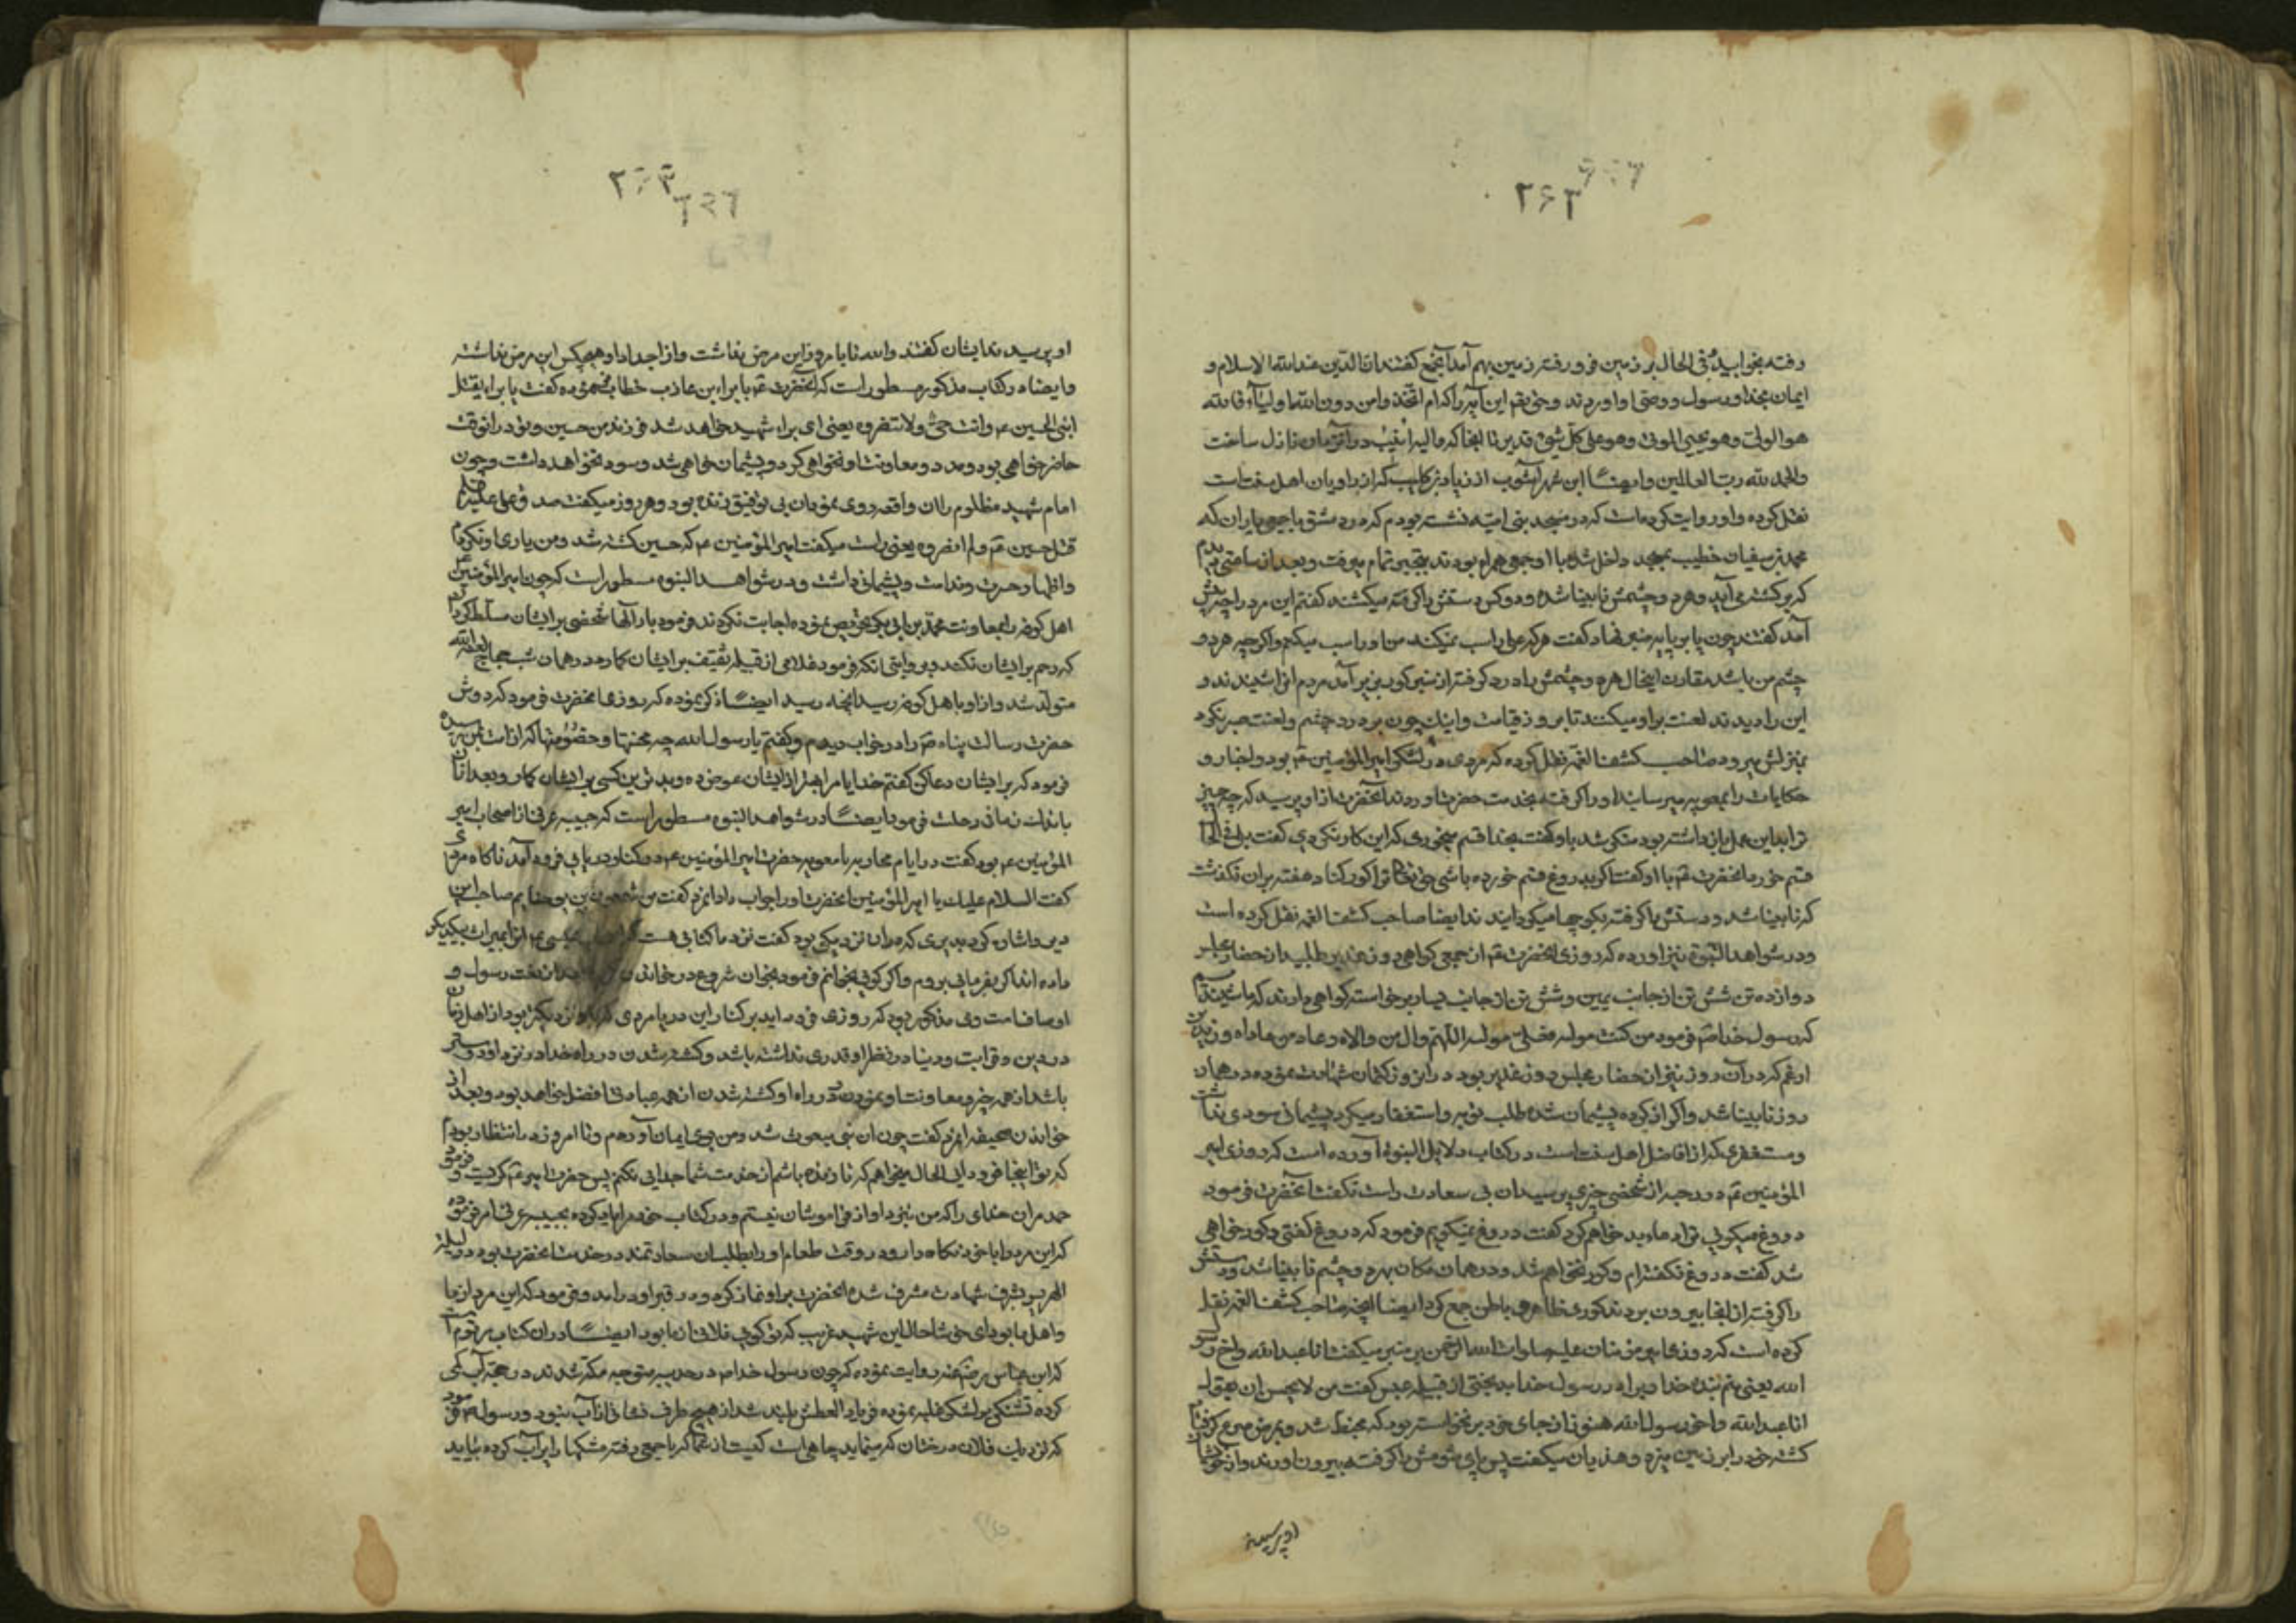 ۲۶۳
رفته بخوابید و فی الحال بر زمین فرو رفته زمین بهم آمد آنجمع گفتند ان الدین عند الله الاسلام و
ایمان بخدا و رسول و وصی او اوردند و حق تعالی این آیه را که ام اتخذوا من دون الله اولیآء فالله
هو الولی و هو یحیی الموتی و هو علی کل شیء قدیر تا اینجا که و الیه انیب در آنزمان نازل ساخت
والحمد لله رب العالمین و ایضا ابن شهرآشوب از زیاد بن کلیب که از راویان اهل سنت است
نقل کرده و او روایت کرده است که در مسجد بنی امیه نشسته بودم که در دمشق با جمعی یاران که
محمد بن سفیان خطیب بمسجد داخل شد با او جمعی همراه بودند بتجبر تمام میرفت و بعد از ساعتی دیدم
که بر کشتی آید و هر دو چشمش نابینا شده و دو کس دستش را گرفته میکشند گفتم این مرد را چه پیش
آمد گفتند چون پا بر پایه منبر نهاد گفت هر که علی را سب نمیکند من او را سب میکنم و اگر چه هر دو
چشم من باشد مقارن اینحال هر دو چشمش بدرد گرفته از منبر کور بزیر آمد مردم از شنیدند و
این را دیدند لعنت بر او میکنند تا بروز قیامت و اینک چون بر درد چشم و لعنت صبر نکرد
بمنزلش میرود صاحب کشف الغمه نقل کرده که مردی در لشکر امیر المؤمنین ع بود و اخبار و
حکایات را بمعویه میرسانید او را گرفته بخدمت حضرت اوردند آنحضرت از او پرسید که چه چیز
ترا بر این عمل بازداشته بود منکر شد باو گفت بخدا قسم میخوری که این کار نکردی گفت بلی فی الحال
قسم خورد آنحضرت ع با او گفت اگر بدروغ قسم خورده باشی حق تعالی ترا کور کناد هفته بر ان نگذشت
که نابینا شد و دستش را گرفته بکوچها میگردانیدند ایضا صاحب کشف الغمه نقل کرده است
و در شواهد النبوة نیز اورده که روزی آنحضرت ع از جمعی گواهی روز غدیر طلبید از حضار مجلس
دوازده تن شش تن از جانب یمین و شش تن از جانب یسار برخواستند گواهی دادند که ما شنیدیم
که رسول خدا ص فرمود من کنت مولاه فعلی مولاه اللهم وال من والاه و عاد من عاداه و زید بن
ارقم که در آن روز نیز از حضار مجلس روز غدیر بود در انروز کتمان شهادت نموده در همان
روز نابینا شد و اگر از کرده پشیمان شده طلب توبه و استغفار میکرد پشیمانی سودی نداشت
و مستغفری که از افاضل اهل سنت است در کتاب دلایل النبوه آورده است که روزی امیر
المؤمنین ع در رحبه از شخصی چیزی پرسید ان بی سعادت راست نگفت آنحضرت فرمود
دروغ میگویی ترا دعای بد خواهم کرد گفت دروغ نمیگویم فرمود که دروغ گفتی و کور خواهی
شد گفت دروغ نگفته‌ام و کور نخواهم شد و در همان مکان بهر دو چشم نابینا شد و دستش
را گرفته از آنجا بیرون بردند کوری ظاهر و باطن جمع کرد ایضا آنچه صاحب کشف الغمه نقل
کرده است که روزی امیر مؤمنان علیه صلوات الله الرحمن بر منبر میگفت انا عبد الله و اخ رسول
الله یعنی منم بنده خدا و برادر رسول خدا بدبختی از قبیله عبس گفت من لا یحسن ان یقول
انا عبد الله و اخو رسول الله هنوز از جای خود برنخواسته بود که مخبط شد و بمرض صرع گرفتار
گشته خود را بر زمین میزد و هذیان میگفت پس پای شومش را گرفته بیرون اوردند و از خویشان
او پرسید
۲۶۳
او پرسیدند ایشان گفتند والله تا بامروز این مرض نداشت و از اجداد او هیچکس این مرض نداشته
و ایضا در کتاب مذکور مسطور است که آنحضرت ع با براء بن عازب خطاب نموده گفت یا براء یقتل
ابنی الحسین ع و انت حی و لا تنصره یعنی ای براء شهید خواهد شد فرزند من حسین و تو در انوقت
حاضر خواهی بود و مدد و معاونت او نخواهی کرد و پشیمان خواهی شد و سود نخواهد داشت و چون
امام شهید مظلوم را ان واقعه روی نمود ان بی توفیق زنده بود و هر روز میگفت صدق علی علیه السلام
قتل حسین ع و لم انصره یعنی راست میگفت امیر المؤمنین ع که حسین کشته شد و من یاری او نکردم
و اظهار حسرت و ندامت و پشیمانی داشت و در شواهد النبوه مسطور است که چون امیر المؤمنین ع
اهل کوفه را بمعاونت محمد بن ابی بکر تحریص نموده اجابت نکردند فرمود بار الها شخصی بر ایشان مسلط گردان
که رحم بر ایشان نکند و بروایتی انکه فرمود غلامی از قبیله ثقیف بر ایشان گمار و در همان شب حجاج لعنه الله
متولد شد و از او باهل کوفه رسید آنچه رسید ایضا ذکر نموده که روزی آنحضرت فرمود که دوش
حضرت رسالت پناه ص را در خواب دیدم و گفتم یا رسول الله چه محنتها و خصومتها که از امت بمن رسیده
فرمود که بر ایشان دعا کن گفتم خدایا مرا بهتر از ایشان عوض ده و بدترین کسی بر ایشان گمار و بعد از ان
باندک زمانی رحلت فرمود ایضا در شواهد النبوه مسطور است که حبیب عرنی از اصحاب امیر
المؤمنین ع بود گفت در ایام محاربه با معویه حضرت امیر المؤمنین ع در کنار دریایی فرود آمد ناگاه مردی
گفت السلام علیک یا امیر المؤمنین آنحضرت او را جواب داد انمرد گفت من شمعون بن یوحنایم صاحب این
دیر و اشاره کرد بدیری که در ان نزدیکی بود گفت نزد ما کتابی هست که از عیسی ع انرا بمیراث بیکدیگر
داده‌اند اگر بفرمایی بروم و اگر گویی بخوانم فرمود بخوان شروع در خواندن کرد بعد از نعت رسول و
اوصاف امت وی مذکور بود که روزی فرود اید بر کنار این دریا مردی که باو نزدیکتر بود از اهل زمان
در دین و قرابت و دنیا در نظر او قدری نداشته باشد و کشته شدن در راه خدا در نزد او دوستتر
باشد از همه چیز و معاونت او نمودن و در راه او کشته شدن از همه عبادتها افضل خواهد بود و بعد از
خواندن صحیفه انمرد گفت چون ان نبی مبعوث شد و من بوی ایمان آوردم و تا امروز در انتظار بودم
که تو اینجا فرود آیی الحال میخواهم که تا زنده باشم از خدمت شما جدایی نکنم پس حضرت امیر ع گریست و فرمود
حمد مر ان خدای را که من نزد او از فراموشان نیستم و در کتاب خود مرا یاد کرده بحبیب عرنی امر فرموده
که این مرد را با خود نگاه دار و در وقت طعام او را بطلب ان سعادتمند در خدمت آنحضرت بود در لیلة
الهریر بشرف شهادت مشرف شد آنحضرت بر او نماز کرد و در قبر او درامد و فرمود که این مرد از ما
و اهل ما بود ای خوشا حال این شهید غریب که تو گویی فلانی از ما بود ایضا در ان کتاب مرقوم است
که ابن عباس رضی عنه روایت نموده که چون رسول خدا ص در حدیبیه متوجه مکه شدند در جحفه آب کمی
کرده تشنگی بر لشکر غلبه نموده فریاد العطش بلند شد از هیچ طرف نشانی از آب نبود و رسول ص فرمود
که نزدیک فلان درختان که مینماید چاهی است کیست از شما که با جمعی رفته مشکها را پر آب کرده بیاید